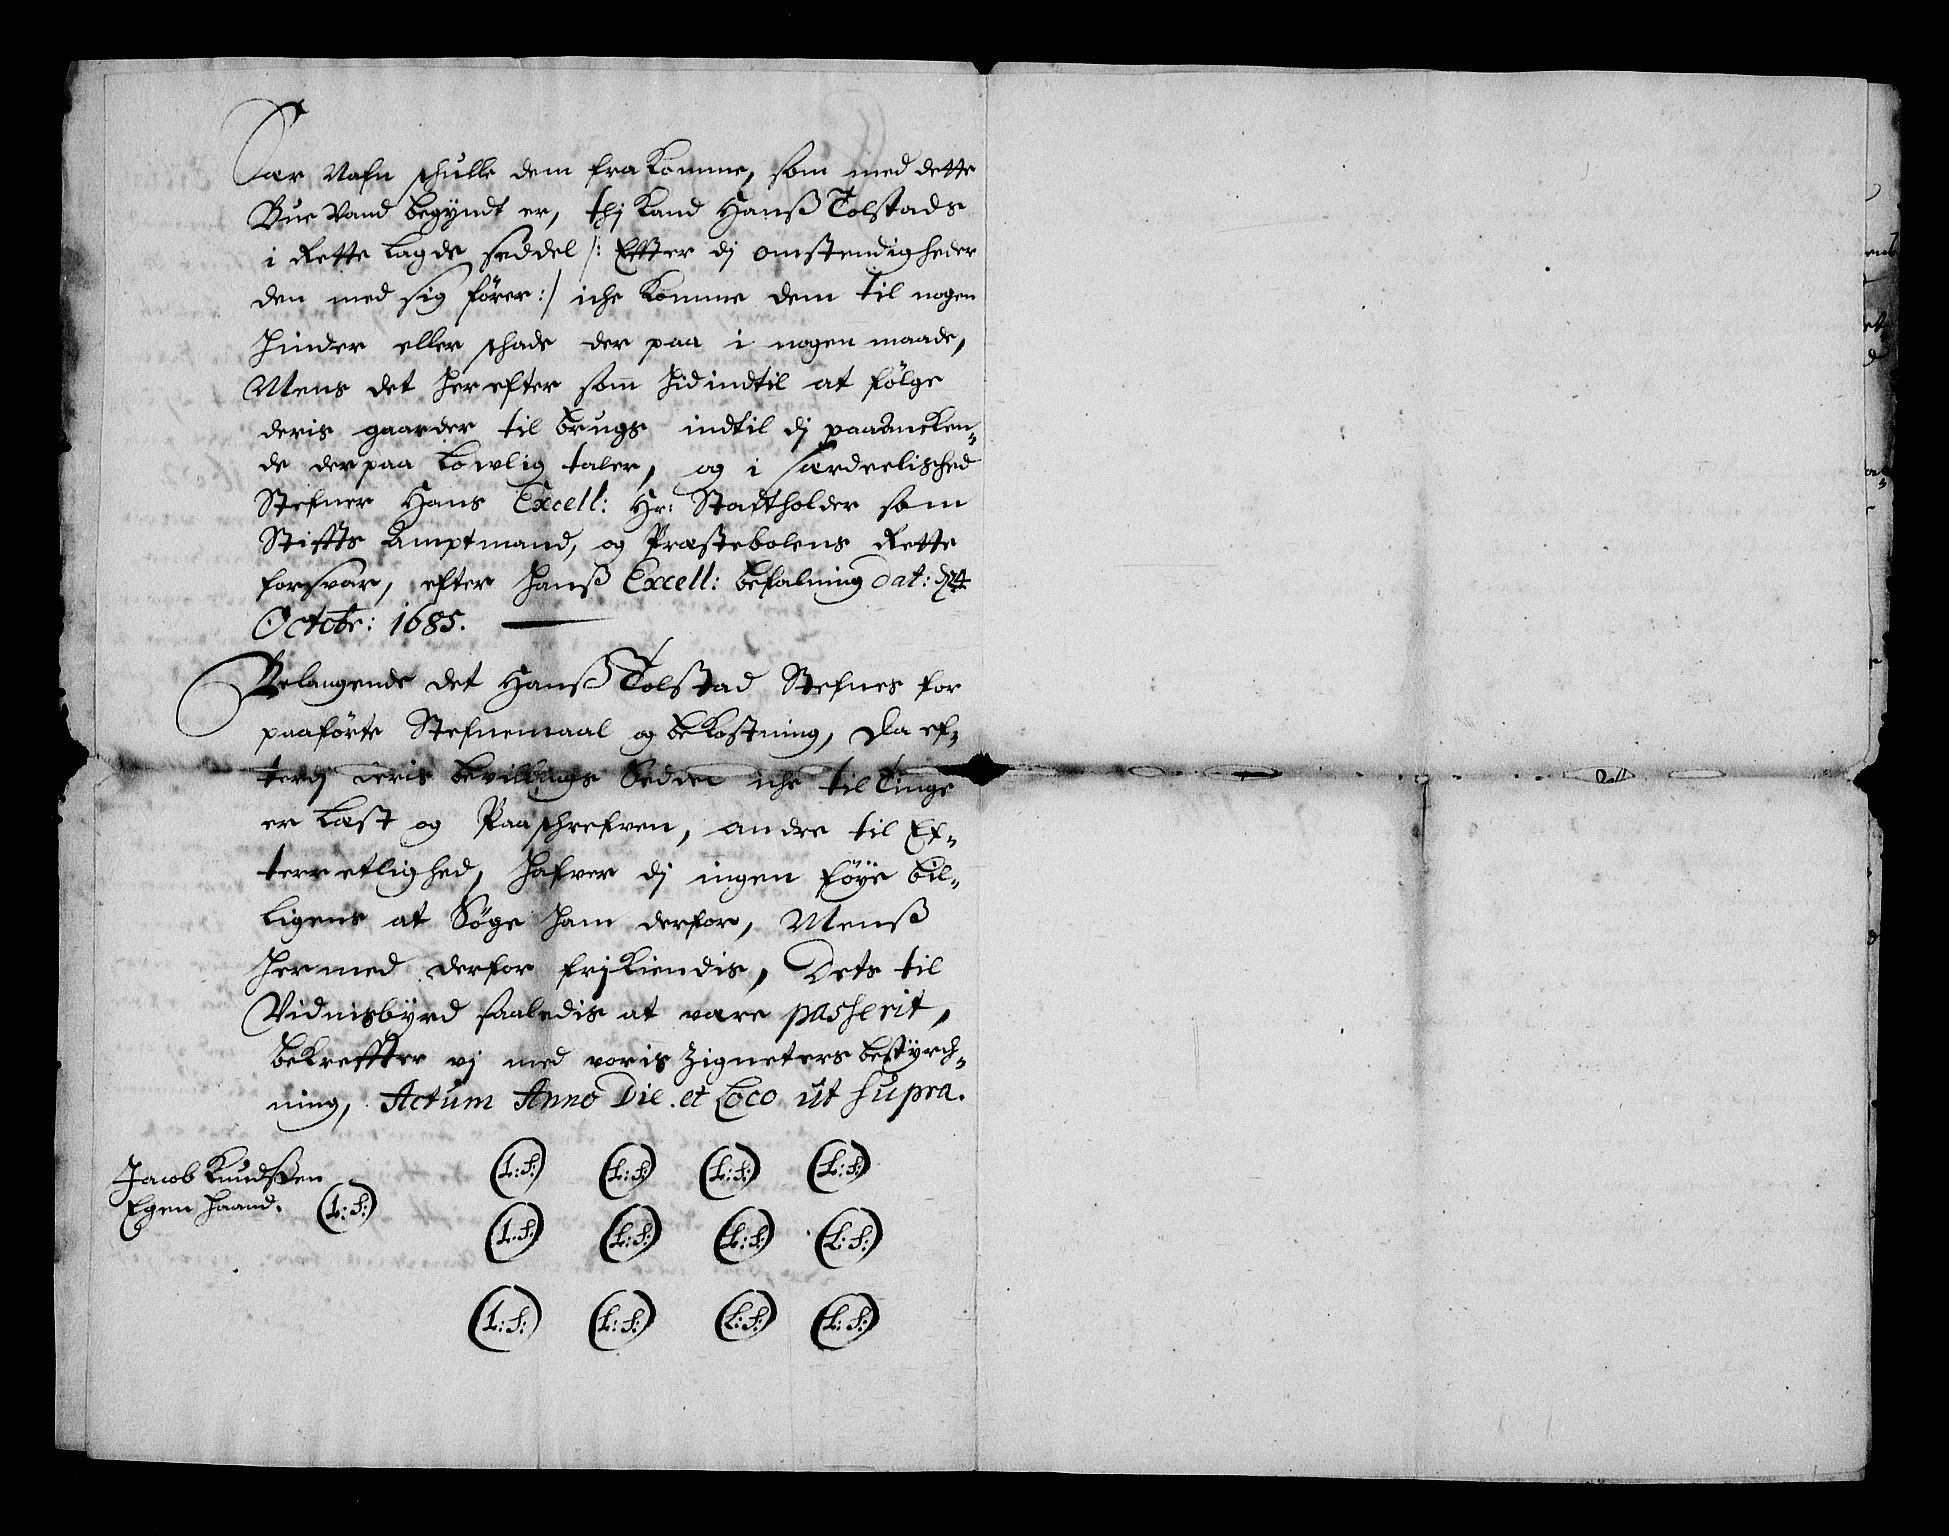 ær Nafn schulle dem fra komme, som med dette
Bue Vand begyndt er, thj kand Hanss Tolstads
i Rette lagde seddel /: Effter dj omstendigheder
den med sig fører :/ iche komme dem til nogen
hinder eller schade der paa i nogen maade,
Mens det her efter som hid indtil at følge
deris gaarder til brugs indtil dj paaancken„
de der paa lowlig taler, og i særdeelished
Stefner Hans Excell: Hr: Statholder som
Stiffts Amptmand, og Præstebolens Rette
forsvar, efter hanss Excell: befalning dat: d 24
Octobr: 1685.
Belangende det Hanss Tolstad Stefnes for
paaførte Stefnemaal og bekostning, da ef„
terdj deris bevillings Seddel iche til Tinge
er Læst og Paaschrefven, andre til Ef„
terretlighed, hafver dj ingen føye bil„
ligens at Søge ham derfor, Menss
hermed derfor frj kiendis, Dets til
Vidnisbyrd saaledis at være passerit,
bekreffter vj med voris Zigneters bestyrch„
ning, Actum Anno Die et Loco ut supra.
Jacob Knudssen (L:S:) (L:S:) (L:S:) (L:S:)
Egen haand. (L:S:) (L:S:) (L:S:) (L:S:) (L:S:)
(L:S:) (L:S:) (L:S:) (L:S:)